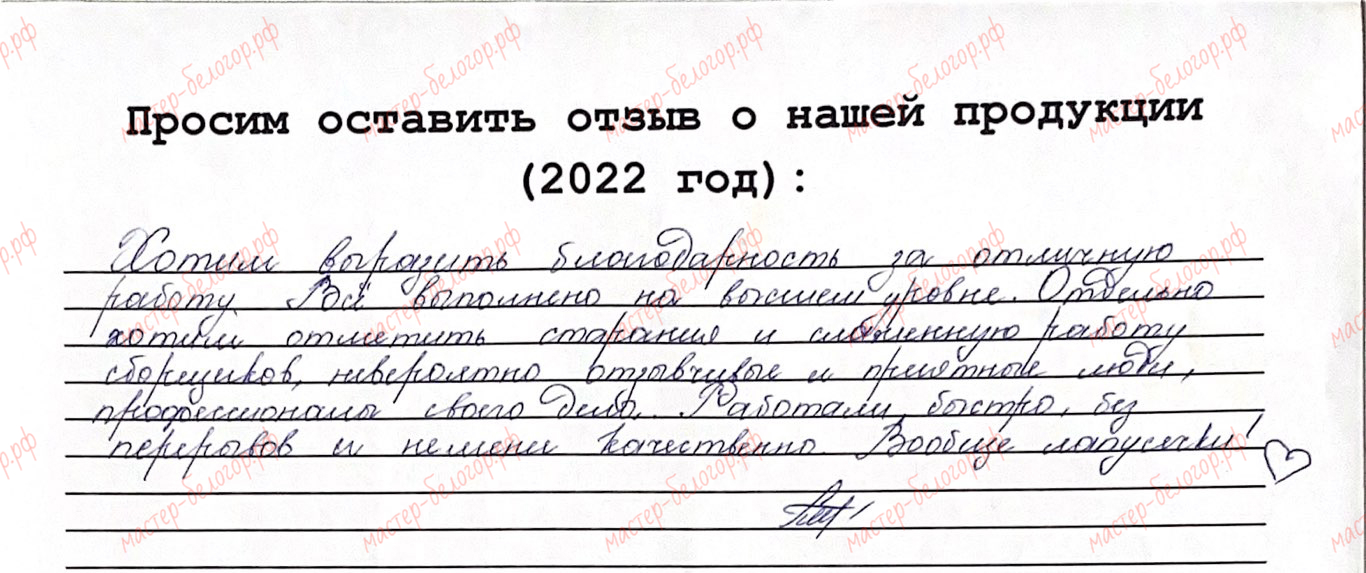 Просим оставить отзыв о нашей продукции
(2022 год):
Хотим выразить благодарность за отличную
работу. Всё выполнено на высшем уровне. Отдельно
хотим отметить старания и слаженную работу
сборщиков, невероятно отзывчивые и приятные люди,
професионалы своего дела. Работали быстро, без
перерывов и немение качественно. Вообще лапусички!
мастер-белогор.рф